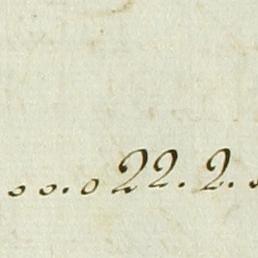 o o. o 22. 2.